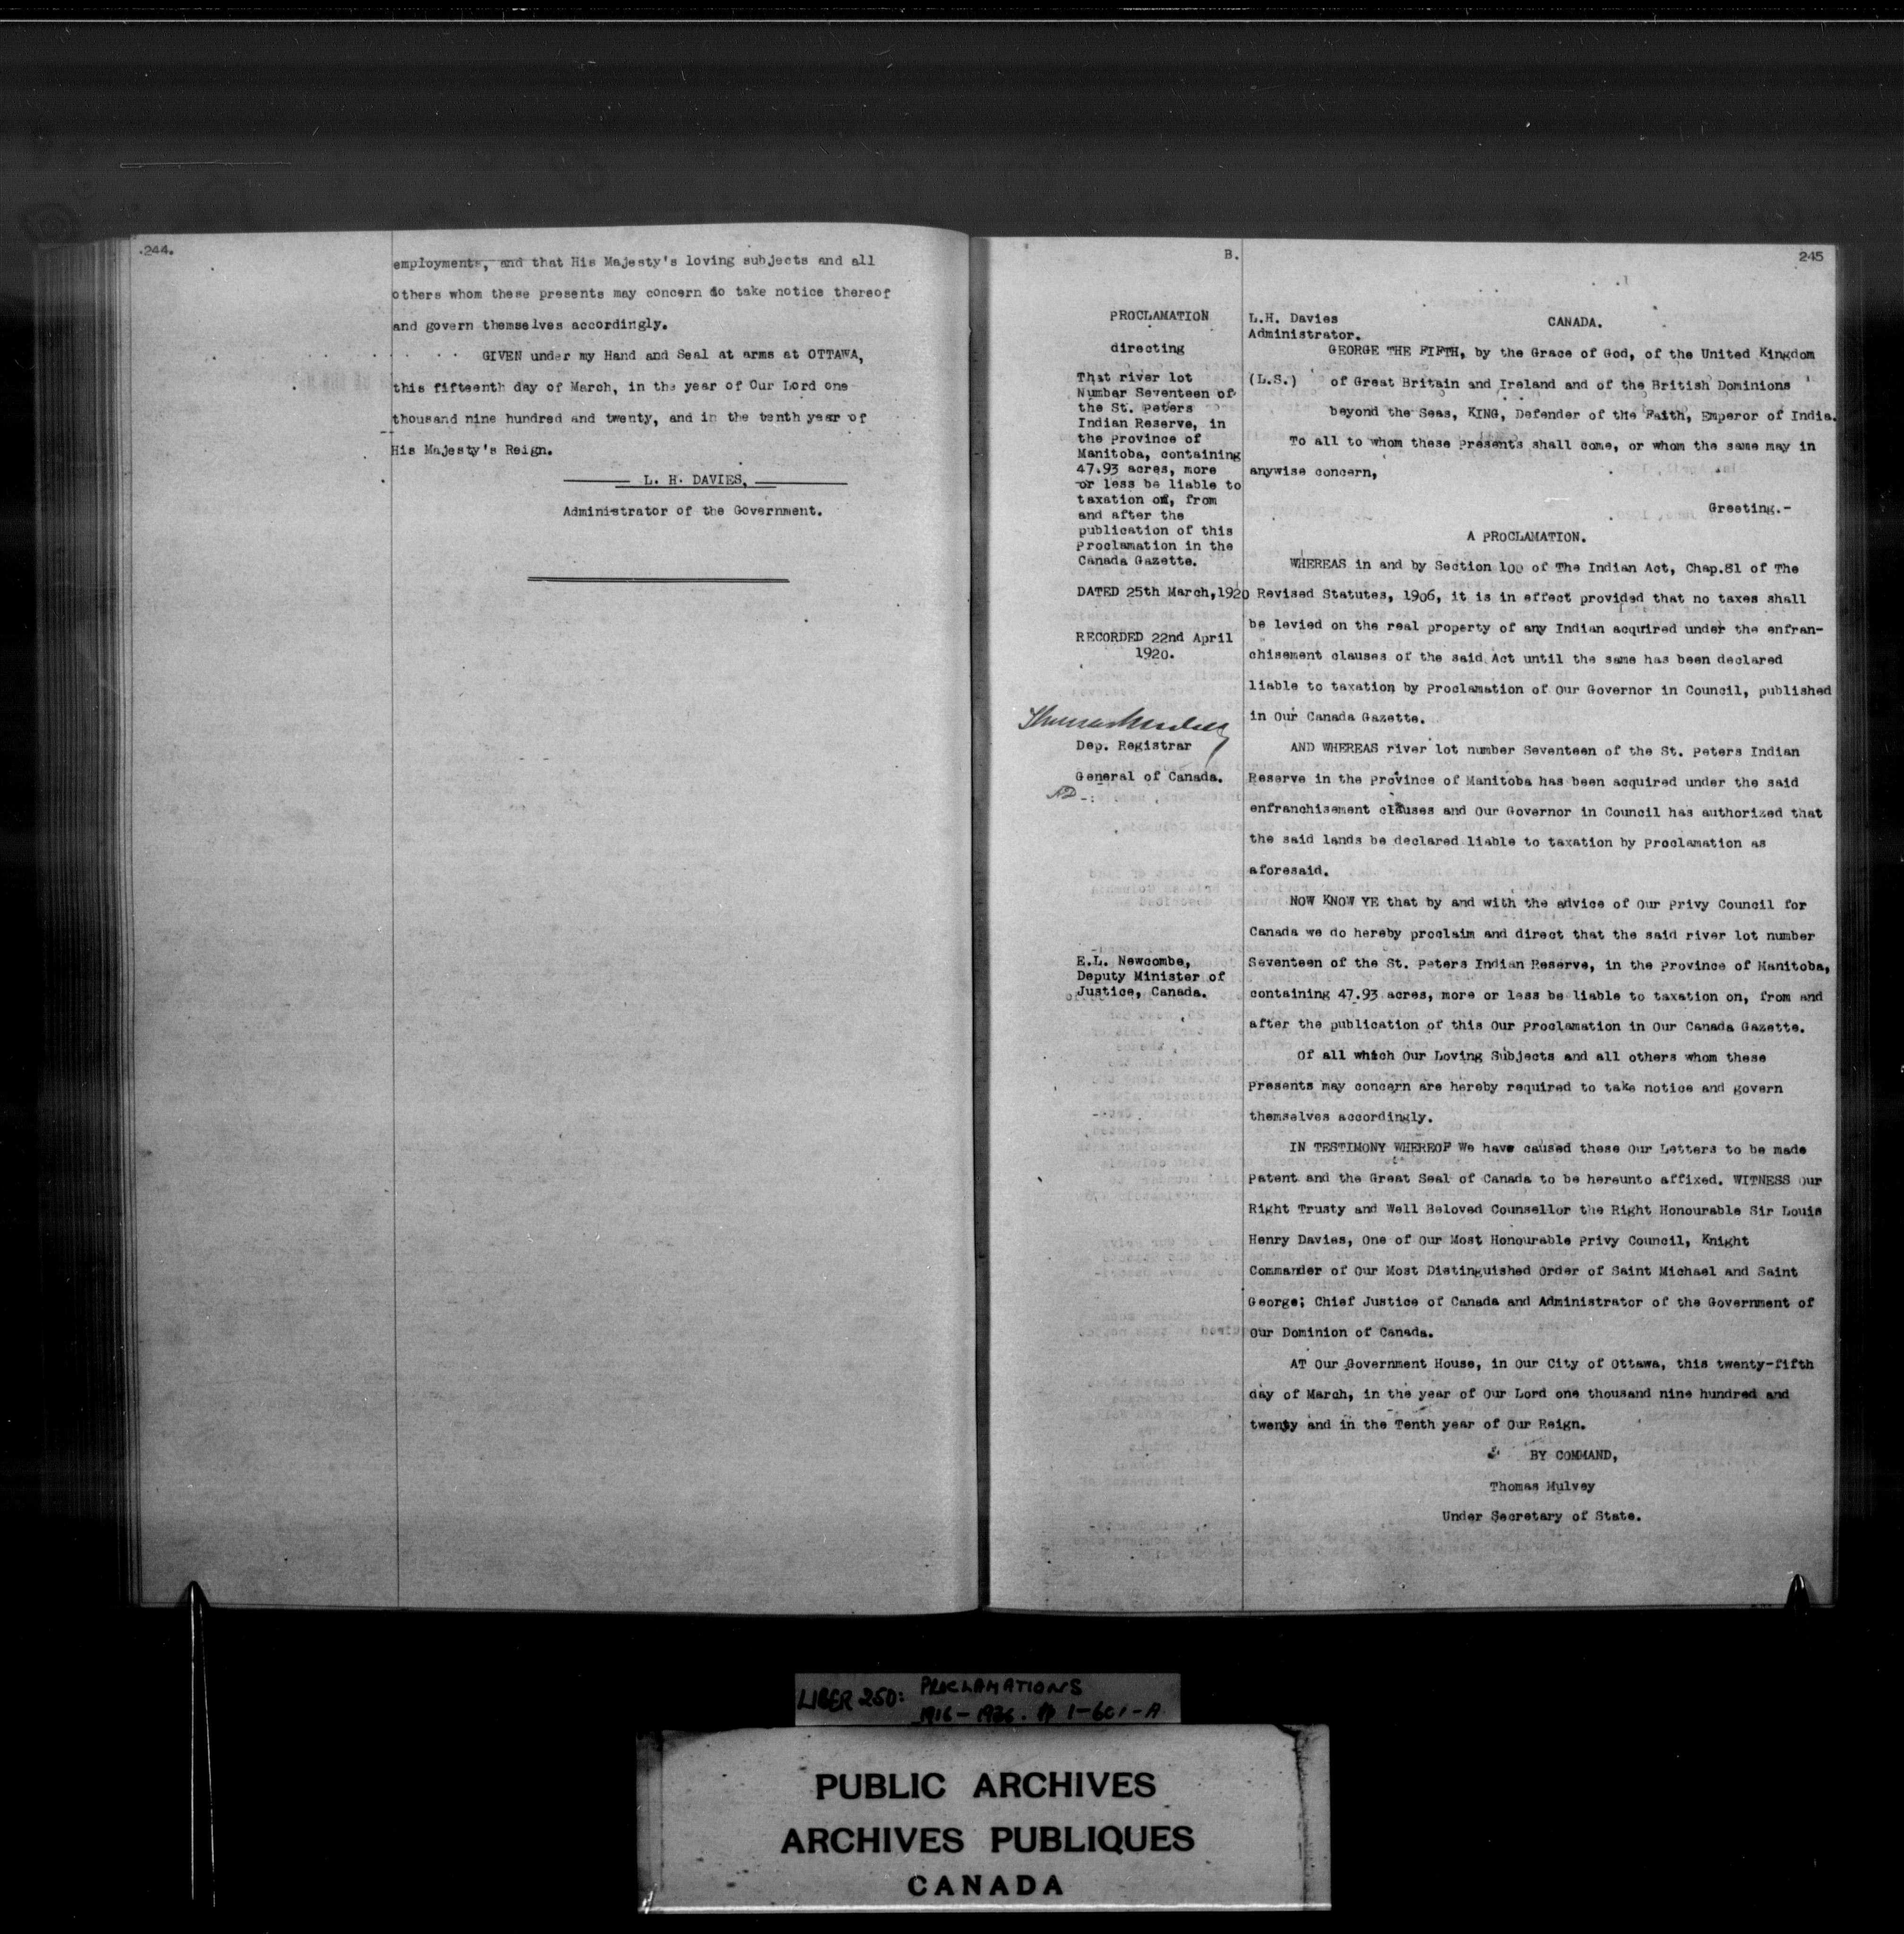 .244.
employments, and that His Majesty's loving subjects and all
others whom these presents may concern do take notice thereof
and govern themselves accordingly.
GIVEN under my Hand and Seal at arms at OTTAWA,
this fifteenth day of March, in the year of Our Lord one
thousand nine hundred and twenty, and in the tenth year of
His Majesty's Reign.
L. H. DAVIES,
Administrator of the Government.
B.
245
PROCLAMATION
directing
That river lot
Number Seventeen of
the St. Peters
Indian Reserve, in
the Province of
Manitoba, containing
47.93 acres, more
or less be liable to
taxation on, from
and after the
publication of this
Proclamation in the
Canada Gazette.
DATED 25th March,1920
RECORDED 22nd April
1920.
Dep. Registrar
General of Canada.
E.L. Newcombe,
Deputy Minister of
Justice, Canada.
L.H. Davies
Administrator.
CANADA.
GEORGE THE FIFTH, by the Grace of God, of the United Kingdom
(L.S.) of Great Britain and Ireland and of the British Dominions
beyond the Seas, KING, Defender of the Faith, Emperor of India.
To all to whom these Presents shall come, or whom the same may in
anywise concern,
Greeting.-
A PROCLAMATION.
WHEREAS in and by Section 100 of The Indian Act, Chap.81 of The
Revised Statutes, 1906, it is in effect provided that no taxes shall
be levied on the real property of any Indian acquired under the enfran-
chisement clauses of the said Act until the same has been declared
liable to taxation by Proclamation of Our Governor in Council, published
in Our Canada Gazette.
AND WHEREAS river lot number Seventeen of the St. Peters Indian
Reserve in the Province of Manitoba has been acquired under the said
enfranchisement clauses and Our Governor in Council has authorized that
the said lands be declared liable to taxation by Proclamation as
aforesaid.
NOW KNOW YE that by and with the advice of Our Privy Council for
Canada we do hereby proclaim and direct that the said river lot number
Seventeen of the St. Peters Indian Reserve, in the Province of Manitoba,
containing 47.93 acres, more or less be liable to taxation on, from and
after the publication of this Our Proclamation in Our Canada Gazette.
Of all which Our Loving Subjects and all others whom these
Presents may concern are hereby required to take notice and govern
themselves accordingly.
IN TESTIMONY WHEREOF We have caused these Our Letters to be made
Patent and the Great Seal of Canada to be hereunto affixed. WITNESS Our
Right Trusty and Well Beloved Counsellor the Right Honourable Sir Louis
Henry Davies, One of Our Most Honourable Privy Council, Knight
Commander of Our Most Distinguished Order of Saint Michael and Saint
George; Chief Justice of Canada and Administrator of the Government of
Our Dominion of Canada.
AT Our Government House, in Our City of Ottawa, this twenty-fifth
day of March, in the year of Our Lord one thousand nine hundred and
twenty and in the Tenth year of Our Reign.
BY COMMAND,
Thomas Mulvey
Under Secretary of State.
LIBER 250: PROCLAMATIONS
1916-1936. pp 1-601-A
PUBLIC ARCHIVES
ARCHIVES PUBLIQUES
CANADA